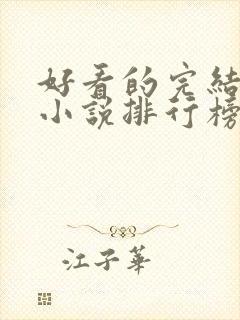 好看的完結
小說排行榜
江子華